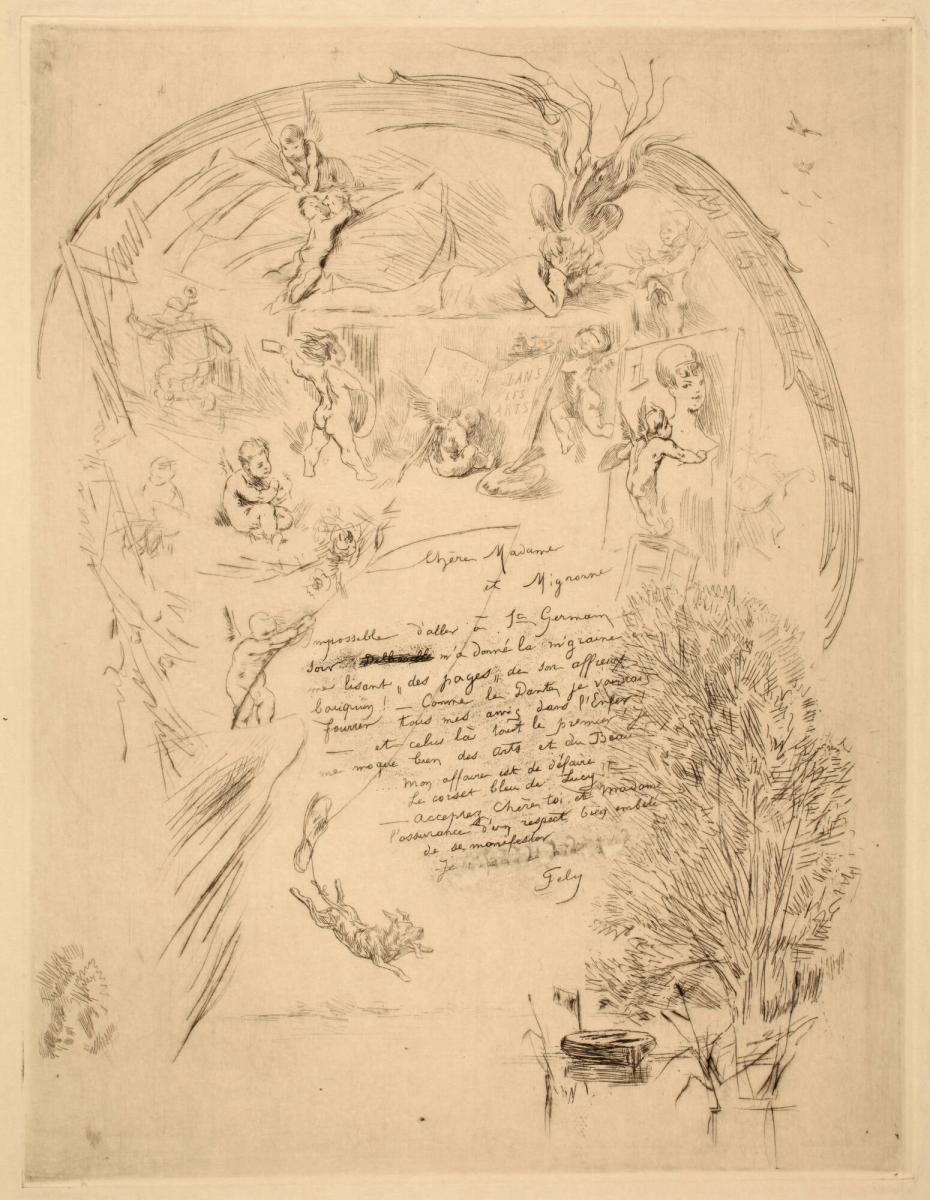 MISAINE!
DANS
LES
ARTS
Chère Madame
et Mignonne
Impossible d'aller à St Germain
m'a donné la migraine
me lisant „des pages„ de son affreux
bouquin! — Comme le Dante, je voudrais
fourrer tous mes amis dans l'Enfer
— et celui là tout le premier
me moque bien des Arts et du Beau
mon affaire est de défaire
Le corset bleu de Lucy!!
— acceptez, Chère toi, et madame
l'assurance d'un respect bien embêté
de se manifester
Je
Fély